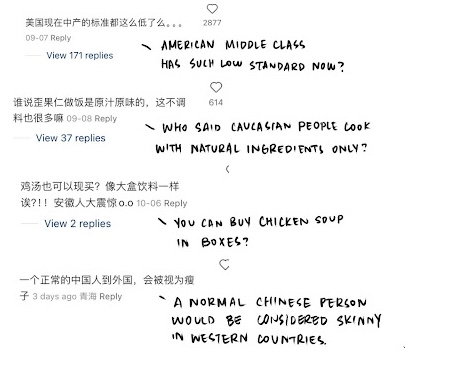 美国现在中产的标准都这么低了么。。。
2877
09-07 Reply
View 171 replies
AMERICAN MIDDLE CLASS
HAS SUCH LOW STANDARD NOW?
谁说歪果仁做饭是原汁原味的，这不调
料也很多嘛 09-08 Reply
614
View 37 replies
WHO SAID CAUCASIAN PEOPLE COOK
WITH NATURAL INGREDIENTS ONLY?
鸡汤也可以现买？像大盒饮料一样
诶?!！安徽人大震惊o.o 10-06 Reply
View 2 replies
YOU CAN BUY CHICKEN SOUP
IN BOXES?
一个正常的中国人到外国，会被视为瘦
子 3 days ago 青海 Reply
A NORMAL CHINESE PERSON
WOULD BE CONSIDERED SKINNY
IN WESTERN COUNTRIES.